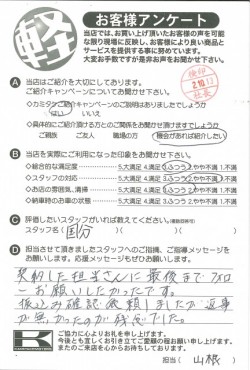 軽
お客様アンケート
当店では、お買い上げ頂いたお客様の声を可能
な限り現場に反映し、お客様により良い商品と
サービスを提供する事に努めています。
大変お手数ですが是非お声をお聞かせ下さい。
A 当店はご紹介を大切にしてあります。
ご紹介キャンペーンについてお聞かせ下さい。
◇カミタケご紹介キャンペーンのご説明はありましたでしょうか
はい いいえ
◇具体的にご紹介頂ける方とのご関係をお聞かせ頂けますでしょうか
ご親族 ご友人 職場の方 機会があれば紹介したい
B 当店を実際にご利用になった印象をお聞かせ下さい。
◇総合的な満足度 5.大満足 4.満足 3.ふつう 2.やや不満 1.不満
◇スタッフの対応 5.大満足 4.満足 3.ふつう 2.やや不満 1.不満
◇お店の雰囲気、清掃 5.大満足 4.満足 3.ふつう 2.やや不満 1.不満
◇納車時のお車の状態 5.大満足 4.満足 3.ふつう 2.やや不満 1.不満
C 評価したいスタッフがいれば教えてください。
スタッフ名( 国分 )
D 担当させて頂きましたスタッフへのご指摘、ご指導メッセージを
お願いします。応援メッセージもぜひお願いします。
契約した担当さんに最後までフォロ
ーお願いしたかったです。
振込み確認依頼しましたが返事
が無かったのが残念でした。
K
ご協力に心よりお礼を申し上げます。
今後とも宜しくお引き立てご愛顧の程お願い申し上げます。
またのご来店を心からお待ちしております。
担当( 山根 )